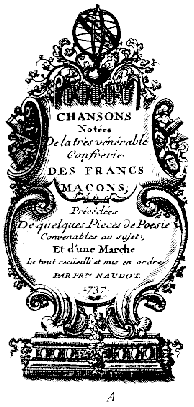 CHANSONS
Notées
De la très vénérable
Confrerie
DES FRANCS
MAÇONS,
Précédées
De quelques Pieces de Poesie
Convenables au sujet,
Et d'une Marche
Le tout recueilli et mis en ordre
PAR FRE. NAUDOT.
1737
A